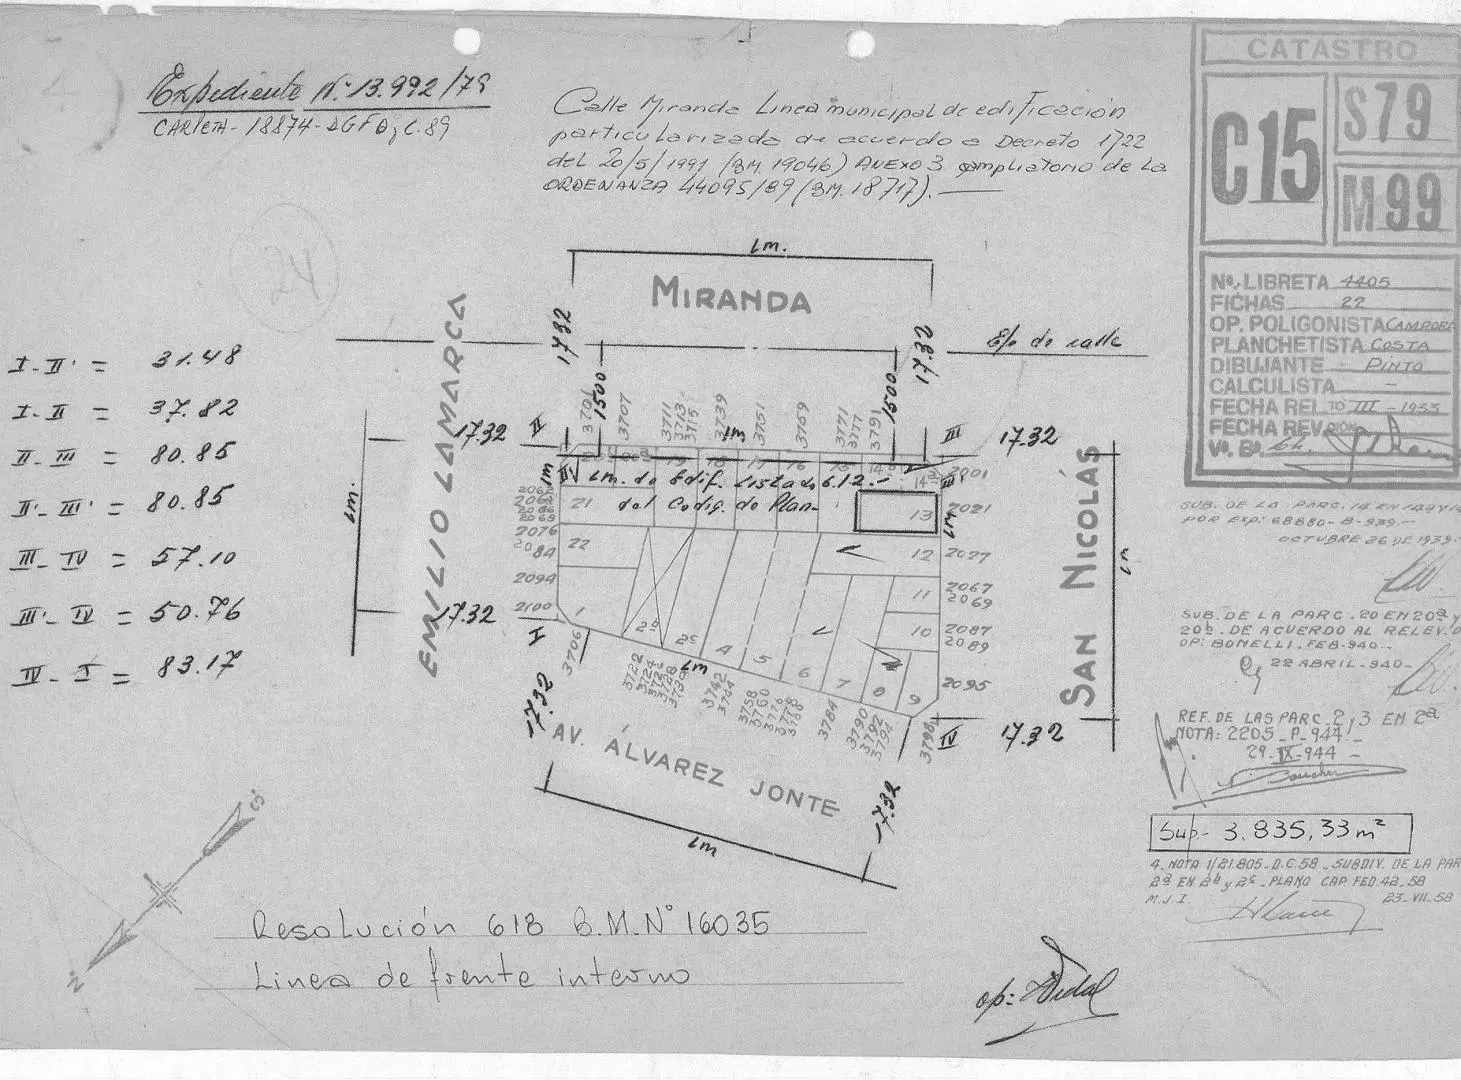 Expediente Nº 13.992/79
CARPETA - 18874 - DGFOyC. 89
Calle Miranda Linea municipal de edificación
particularizada de acuerdo a Decreto 1722
del 20/5/1991 (BM. 19046) ANEXO 3 ampliatorio de la
ORDENANZA 44095/89 (BM. 18717).
CATASTRO
C15
S79
M99
24
Nº LIBRETA 4405
FICHAS 22
OP. POLIGONISTA CAMPORA
PLANCHETISTA COSTA
DIBUJANTE PINTO
CALCULISTA -
FECHA REL. 10 III - 1933
FECHA REV.
Vº Bº
SUB. DE LA PARC. 14 EN 14a Y 14
POR EXP: 68880-B-939.-
OCTUBRE 26 DE 1939.-
SUB. DE LA PARC. 20 EN 20a y
20b. DE ACUERDO AL RELEV. D
OP: BONELLI. FEB-940-
22 ABRIL-940-
REF. DE LAS PARC. 2 y 3 EN 2a
NOTA: 2205-P-944-
29-IX-944-
Sup.- 3.835,33 m²
4. NOTA 1/21.805-D.C.58. SUBDIV. DE LA PAR
2a EN 2b y 2c - PLANO CAP. FED. 42-58
M.J.I. 23-VII-58
I-II' = 31.48
I-II = 37.82
II-III = 80.85
II'-III' = 80.85
III-IV = 57.10
III'-IV = 50.76
IV-I = 83.17
Lm.
MIRANDA
E/e de calle
17.32
17.32
1500
1500
3701
3707
3711
3713
3715
3739
3751
3759
3771
3777
3791
Lm
17.32
II
III
17.32
EMILIO LAMARCA
Lm.
SAN NICOLÁS
Lm
Lm. de Edif. Listado 6.12.-
del Codig. de Plan-
Lm
Lm
III'
19
18
17
16
15
14b
14a
2001
2062
2069
2076
2084
2094
2100
21
22
13
2021
12
2027
11
2067
2069
10
2087
2089
2095
1
2b
2c
4
5
6
7
8
9
17.32
I
17.32
3706
3722
3724
3728
Lm
3742
3744
3758
3760
3784
3790
3792
3794
3798
IV
17.32
17.32
AV. ÁLVAREZ JONTE
Lm
S
N
Resolución 618 B.M. Nº 16035
Linea de frente interno
op: Vidal